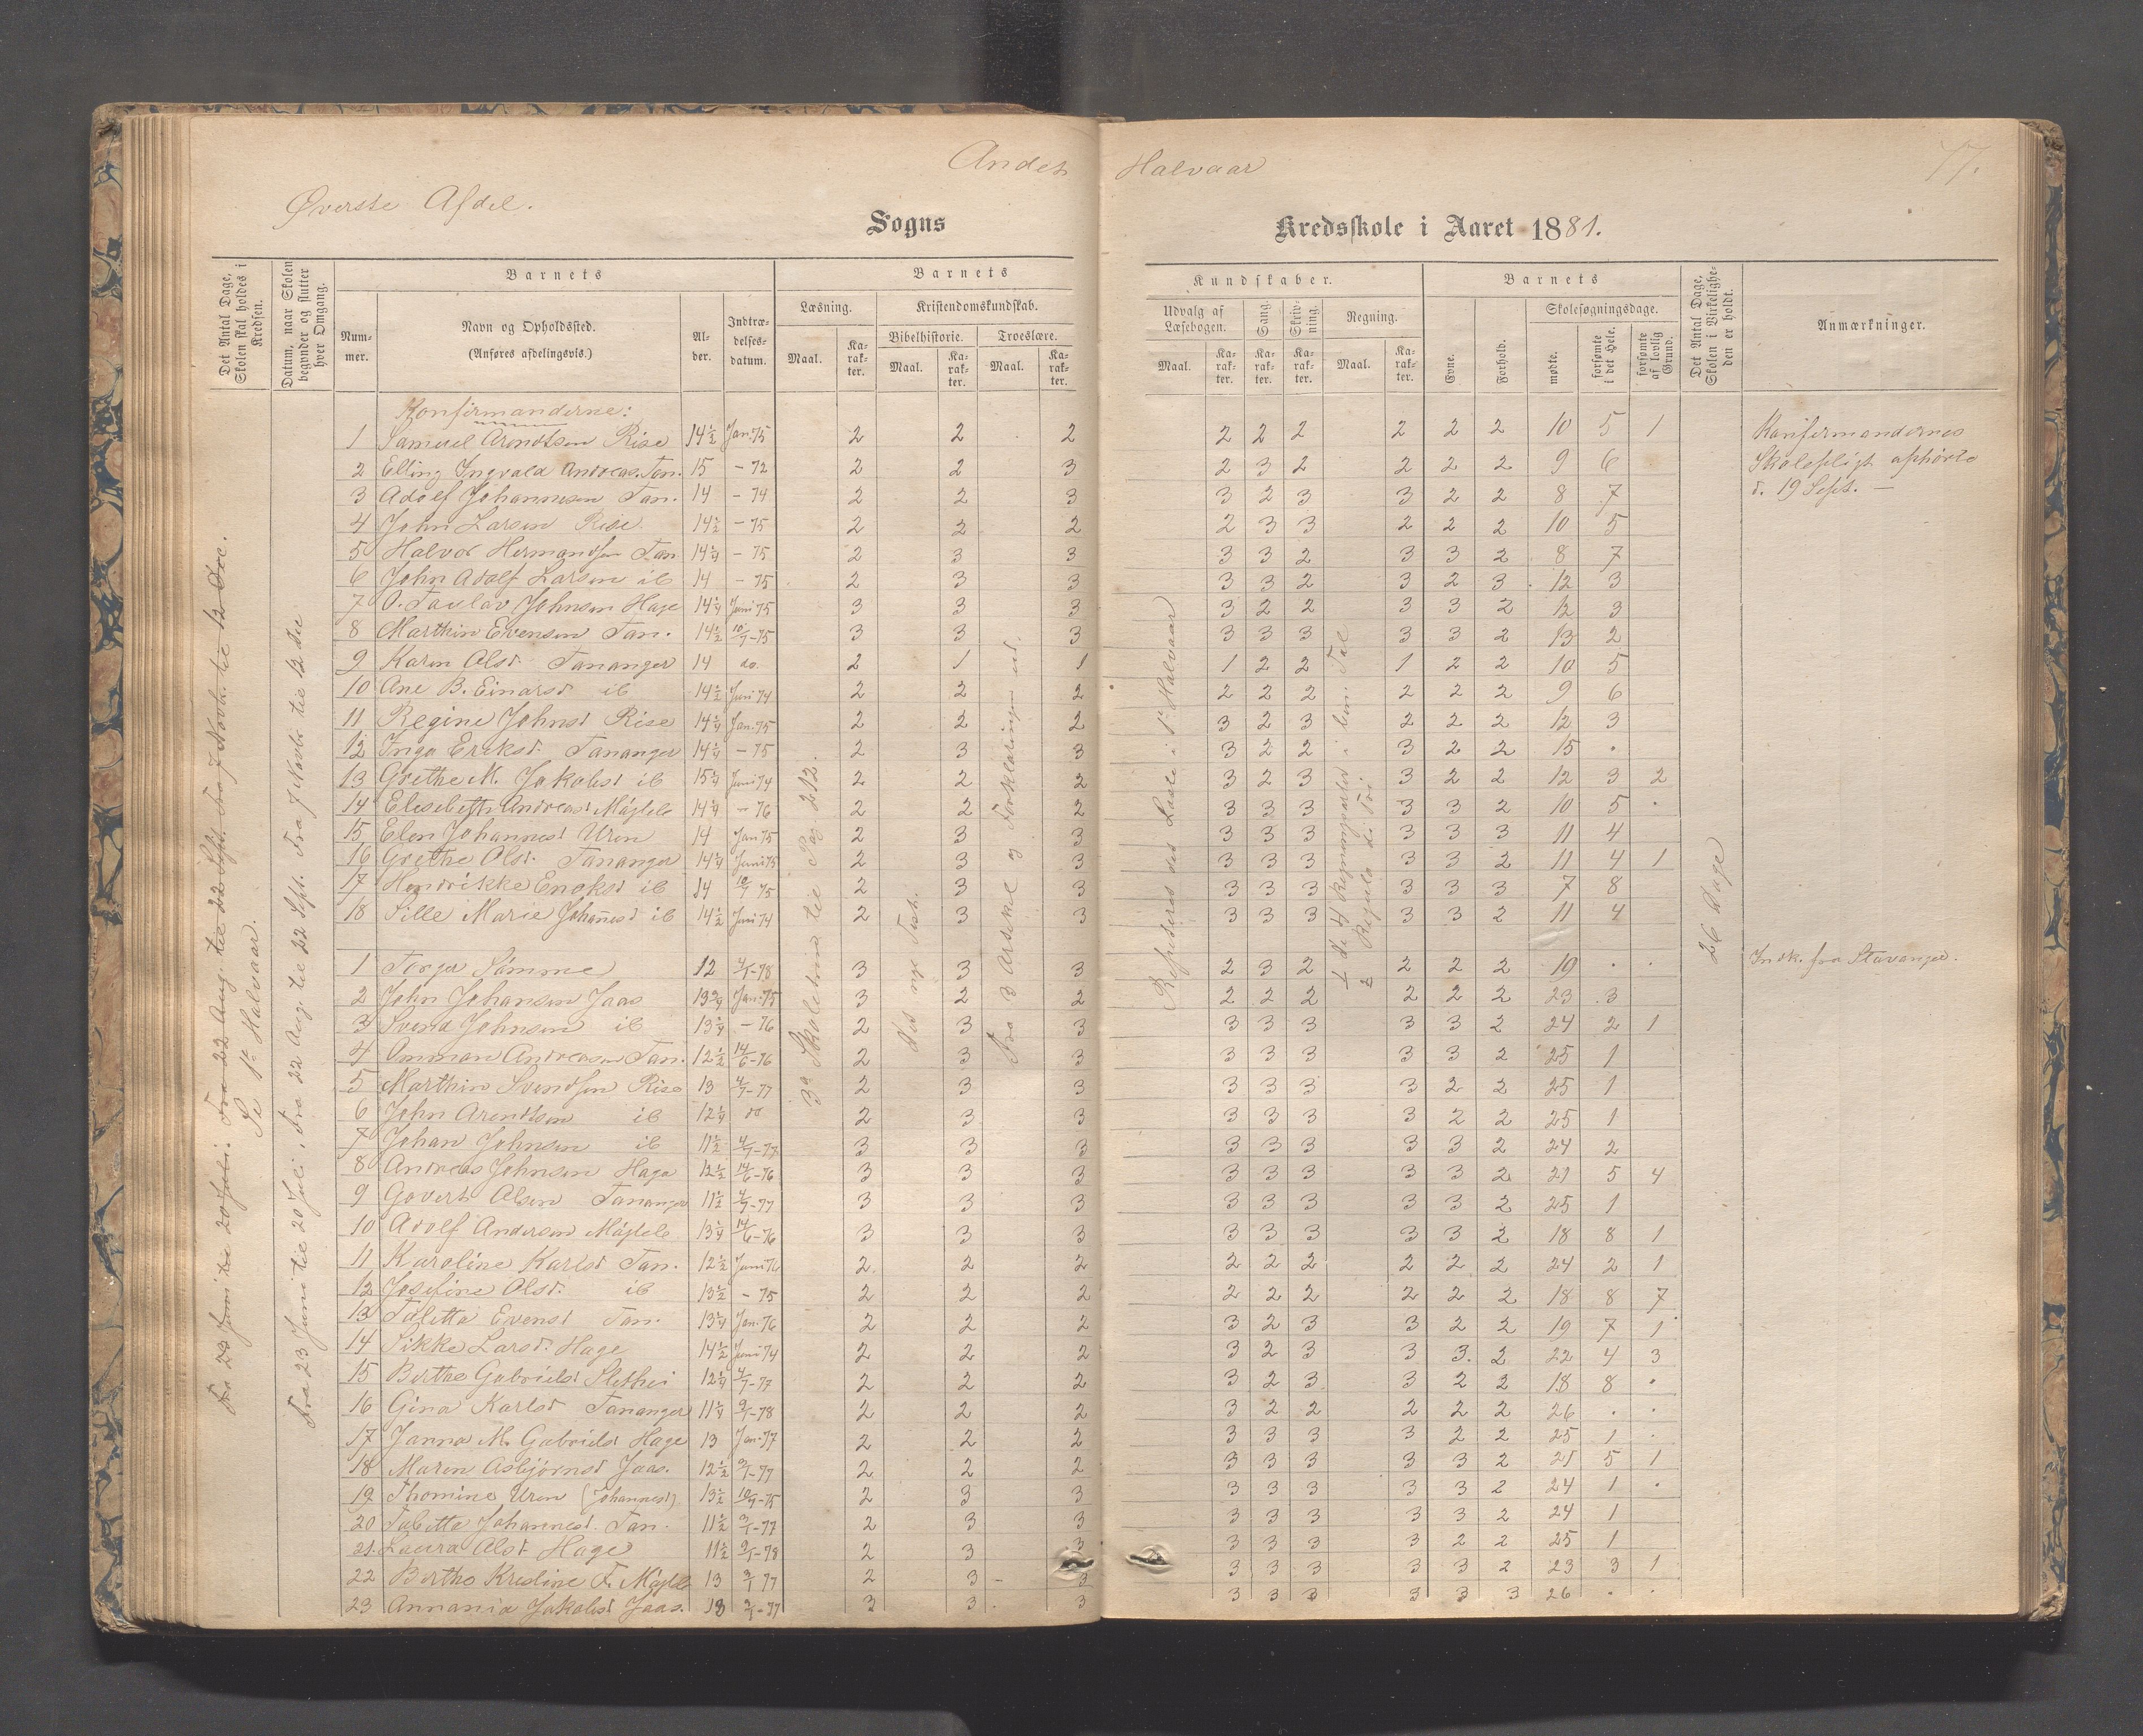 Andet Halvaar
77.
Øverste Afdel.
Sogns Kredsskole i Aaret 1881.
Det Antal Dage, Skolen skal holdes i Kredsen.
Datum, naar Skolen begynder og slutter hver Omgang.
Barnets
Nummer.
Navn og Opholdssted.
(Anføres afdelingsvis.)
Alder.
Indtrædelsesdatum.
Barnets
Læsning.
Kristendomskundskab.
Bibelhistorie.
Troeslære.
Maal. Karakter. Maal. Karakter. Maal. Karakter.
Kundskaber.
Udvalg af Læsebogen.
Sang.
Skrivning.
Regning.
Maal. Karakter. Karakter. Karakter. Maal. Karakter.
Barnets
Evne.
Forhold.
Skolesøgningsdage.
mødte.
forsømte i det Hele.
forsømte af lovlig Grund.
Det Antal Dage, Skolen i Virkeligheden er holdt.
Anmærkninger.
Fra 23 Juni til 20 Juli: Fra 22 Aug. til 22 Sept. Fra 7 Novb. til 12 Dec.
Se 1ste Halvaar.
Fra 23 Juni til 20 Juli, Fra 22 Aug. til 22 Sept. Fra 7 Novb. til 12 Dec
Konfirmanderne:
1 Samuel Arendtsen Rise 14½ Jan. 75 2 2 2 2 2 2 2 2 2 10 5 1 Konfirmandernes
2 Elling Ingvald Andreas. Tan. 15 - 72 2 2 3 2 3 2 2 2 2 9 6 Skolepligt ophørte
3 Adolf Johannesen Tan. 14 - 74 2 2 3 3 2 3 3 2 2 8 7 d. 19 Sept. —
4 John Larsen Rise 14½ - 75 2 2 2 2 3 3 2 2 2 10 5
5 Halvor Hermandsen Tan 14¼ - 75 2 3 3 3 3 2 3 3 2 8 7
6 John Adolf Larsen ib 14 - 75 2 3 3 3 3 2 3 2 3 12 3
7 O. Taulov Johnsen Hage 14¼ Juni 75 3 3 3 3 2 2 3 3 2 12 3
8 Marthin Evensen Tan. 14½ 10/7-75 3 3 3 3 3 3 3 3 2 13 2
9 Karen Olsd. Tananger 14 do. 2 1 1 1 2 2 1 2 2 10 5
10 Ane B. Einarsd ib 14½ Juni 74 2 2 2 2 2 2 2 2 2 9 6
11 Regine Johnsd Rise 14¼ Jan. 75 2 2 2 3 2 3 2 2 2 12 3
12 Inga Eriksd. Tananger 14¼ - 75 2 3 3 3 2 2 3 2 2 15 .
13 Grethe M. Jakobsd ib 15¼ Juni 74 2 2 2 3 2 3 3 2 2 12 3 2
14 Elisebeth Andreasd Mejlele 14¼ - 76 2 2 2 3 3 3 3 3 2 10 5 .
15 Elen Johannesd Uren 14 Jan 75 2 3 3 3 3 3 3 3 3 11 4
16 Grethe Olsd. Tananger 14¼ Juni 75 2 3 3 3 3 3 3 3 2 11 4 1
17 Hendrikke Enoksd ib 14 10/7 75 2 3 3 3 3 3 3 3 3 7 8
18 Sille Marie Johañesd ib 14½ Juni 74 2 3 3 3 3 3 3 3 2 11 4
1 Torger Sømme 12 4/1-78 3 3 3 2 3 2 2 2 2 19 . . Indk. fra Stavanger.
2 John Johansen Jaas 13¾ Jan. 75 3 2 2 2 2 2 2 2 2 23 3
3 Svend Johnsen ib 13¼ - 76 2 3 3 3 3 3 3 3 2 24 2 1
4 Ommon Andreasen Tan. 12½ 14/6-76 2 3 3 3 3 3 3 3 2 25 1
5 Marthin Svendsen Rise 13 4/7-77 2 3 3 3 3 3 3 2 2 25 1
6 John Arendtsen ib 12¼ do 2 3 3 3 3 3 3 2 2 25 1
7 Johan Johnsen ib 11½ 4/7-77 3 3 3 3 3 3 3 3 2 24 2
8 Andreas Johnsen Hage 12½ 14/6-76 3 3 3 3 3 3 3 3 2 21 5 4
9 Govert Olsen Tananger 11½ 4/7-77 3 3 3 3 3 3 3 3 2 25 1
10 Adolf Andersen Mejlele 13¼ 14/6-76 3 3 3 3 3 3 3 3 2 18 8 1
11 Karoline Karlsd Tan. 12½ Juni 76 2 2 2 2 2 2 2 2 2 24 2 1
12 Josefine Olsd. ib 13½ - 75 2 2 2 2 2 2 2 2 2 18 8 7
13 Tabitta Evensd Tan. 13¼ Jan. 76 2 2 2 3 2 3 3 2 2 19 7 1
14 Sikke Larsd. Hage 14½ Juni 74 2 2 2 3 2 3 3 3 2 22 4 3
15 Berthe Gabrielsd Slethei 12¼ 4/7-77 2 2 2 3 2 3 3 2 2 18 8 .
16 Gina Karlsd Tananger 11¼ 9/1-78 2 2 2 3 2 2 2 2 2 26 . .
17 Janna M. Gabrielsd Hage 13 Jan. 77 2 2 2 3 3 3 3 2 2 25 1 .
18 Maren Asbjørnsd Jaas. 12½ 9/1-77 2 2 2 3 3 3 3 3 2 21 5 1
19 Thomine Uren (Johannesd). 13½ 10/7-75 2 3 3 3 3 3 3 3 2 24 1 .
20 Tabitta Johannesd. Tan. 11½ 9/1-77 2 3 3 3 3 3 3 3 2 24 1
21. Laura Olsd Hage 11½ 9/1-78 2 3 3 3 3 3 3 2 2 25 1
22 Berthe Kristine F. Mejlele 13 9/1 77 2 3 - 3 3 3 3 3 3 2 23 3 1
23 Annania Jakobsd Jaas. 13 9/1-77 3 3 3 3 3 3 3 3 3 26 . .
3die Skoletrin til Pag. 212.
Det nye Testa.
Fra 3 Artikel og Forklaringen ud.
Repeteres det Læste i 1ste Halvaar
½ de 4 Regningsarter i ben. Tal
½ Regula de Tri
26 Dage